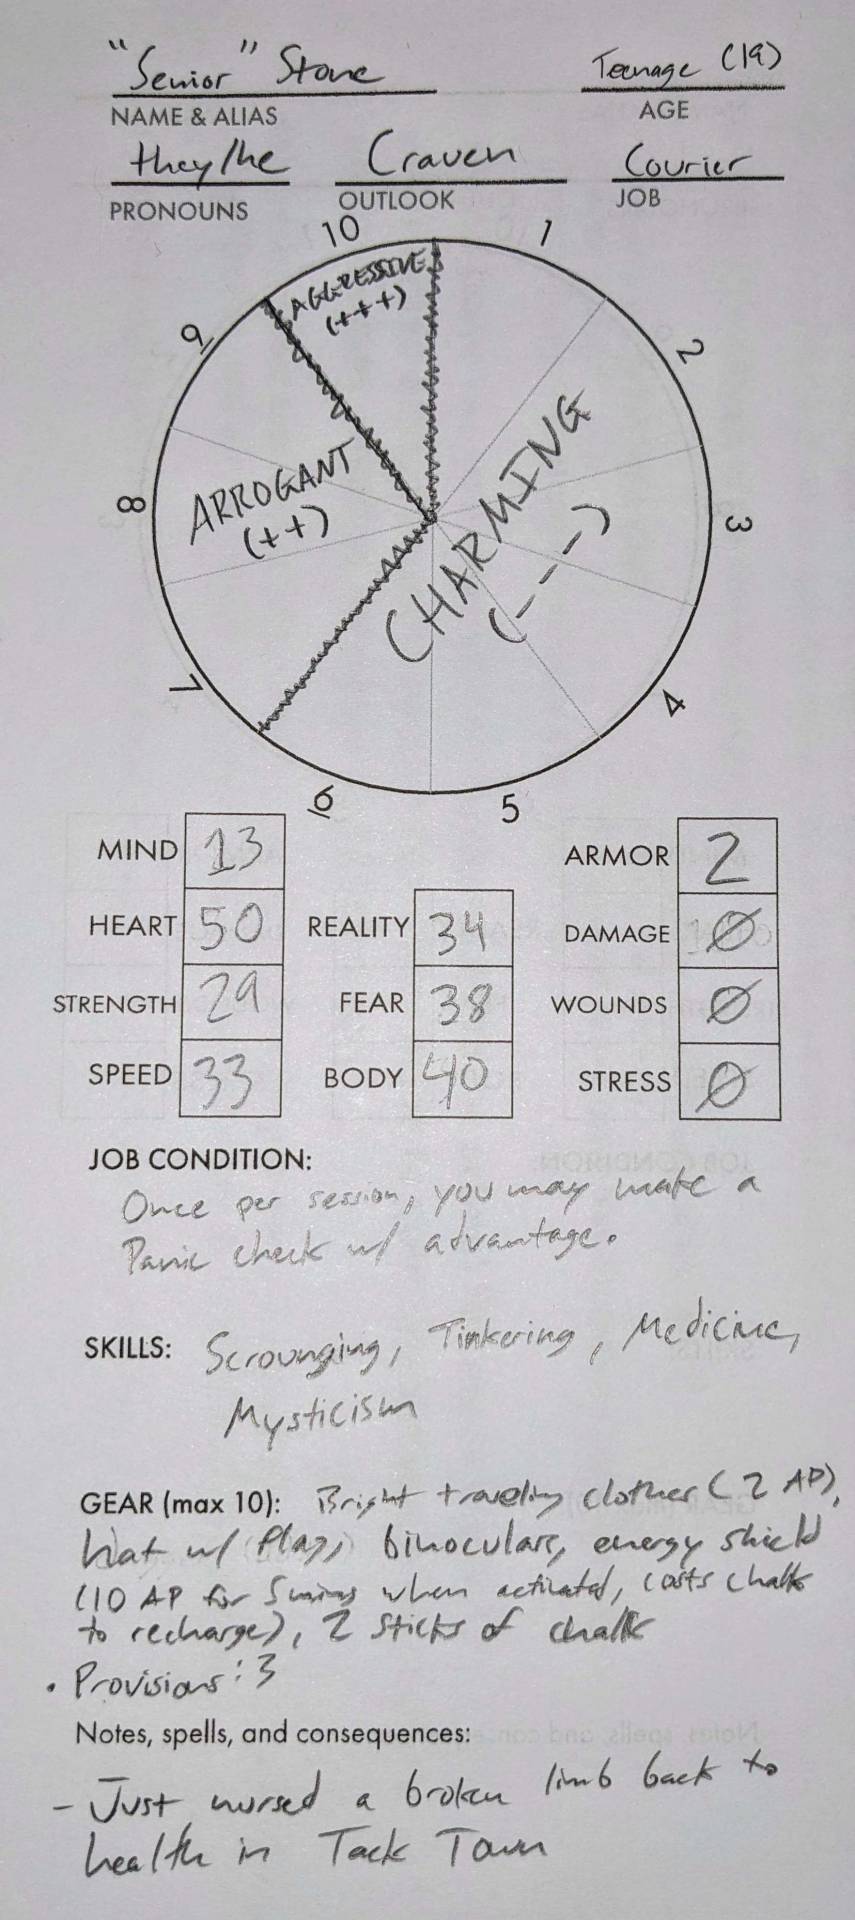 "Senior" Stone Teenage (19)
NAME & ALIAS AGE
they/he Craven Courier
PRONOUNS OUTLOOK JOB
10 1
AGGRESSIVE
(+++)
9 2
CHARMING
(----)
ARROGANT
(++)
8 3
7 4
6 5
MIND 13 ARMOR 2
HEART 50 REALITY 34 DAMAGE 0
STRENGTH 29 FEAR 38 WOUNDS 0
SPEED 33 BODY 40 STRESS 0
JOB CONDITION:
Once per session, you may make a
Panic check w/ advantage.
SKILLS: Scrounging, Tinkering, Medicine,
Mysticism
GEAR (max 10): Bright traveling clothes (2 AP),
hat w/ flag, binoculars, energy shield
(10 AP for 5 mins when activated, costs chalk
to recharge), 2 sticks of chalk
• Provisions: 3
Notes, spells, and consequences:
- Just nursed a broken limb back to
health in Tack Town